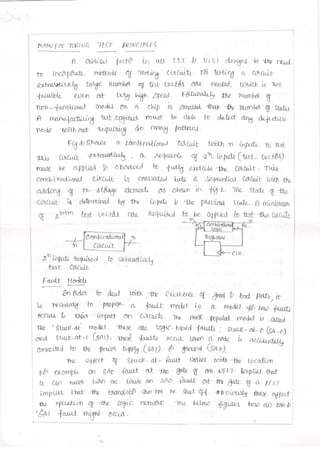 MANUFACTURING TEST PRINCIPLES
A critical factor in all LSI & VLSI designs is the need
to incorporate methods of testing circuits. For testing a circuit
exhaustively large number of test vectors are needed, which is not
feasible even at very high speed. Fortunately the number of
non-functional nodes on a chip is smaller than the number of states
A manufacturing test engineer must be able to detect any defective
node without requiring so many patterns.
Fig 1) shows a combinational circuit with n inputs. To test
this circuit exhaustively, a sequence of 2^n inputs (test vectors)
must be applied & observed to fully exercise the circuit. This
combinational circuit is converted into a sequential circuit with the
adding of m storage elements as shown in fig 2. The state of the
circuit is determined by the inputs & the previous state. A minimum
of 2^n+m test vectors are required to be applied to test the circuit
n
Combinational
Circuit
Combinational
logic
Registers
m
clk
2^n inputs required to exhaustively
test circuit
Fault Models
In order to deal with the existence of good & bad parts, it
is necessary to propose a fault model i.e a model of how faults
occurs & their impact on circuits. The most popular model is called
the 'Stuck-at' model. These are logic based faults : Stuck-at-0 (SA-0)
and Stuck-at-1 (SA1). These faults occur when a node is accidentally
connected to the power supply (SA1) or ground (SA0)
The effect of stuck-at-fault varies with the location.
For example an SA0 fault at the gate of an NFET implies that
it can never turn on while an SA0 fault at the gate of a PFET
implies that the transistor can not be shut off. Obviously these affect
the operation of the logic network. The below figures how an SA0 &
SA1 fault might occur.